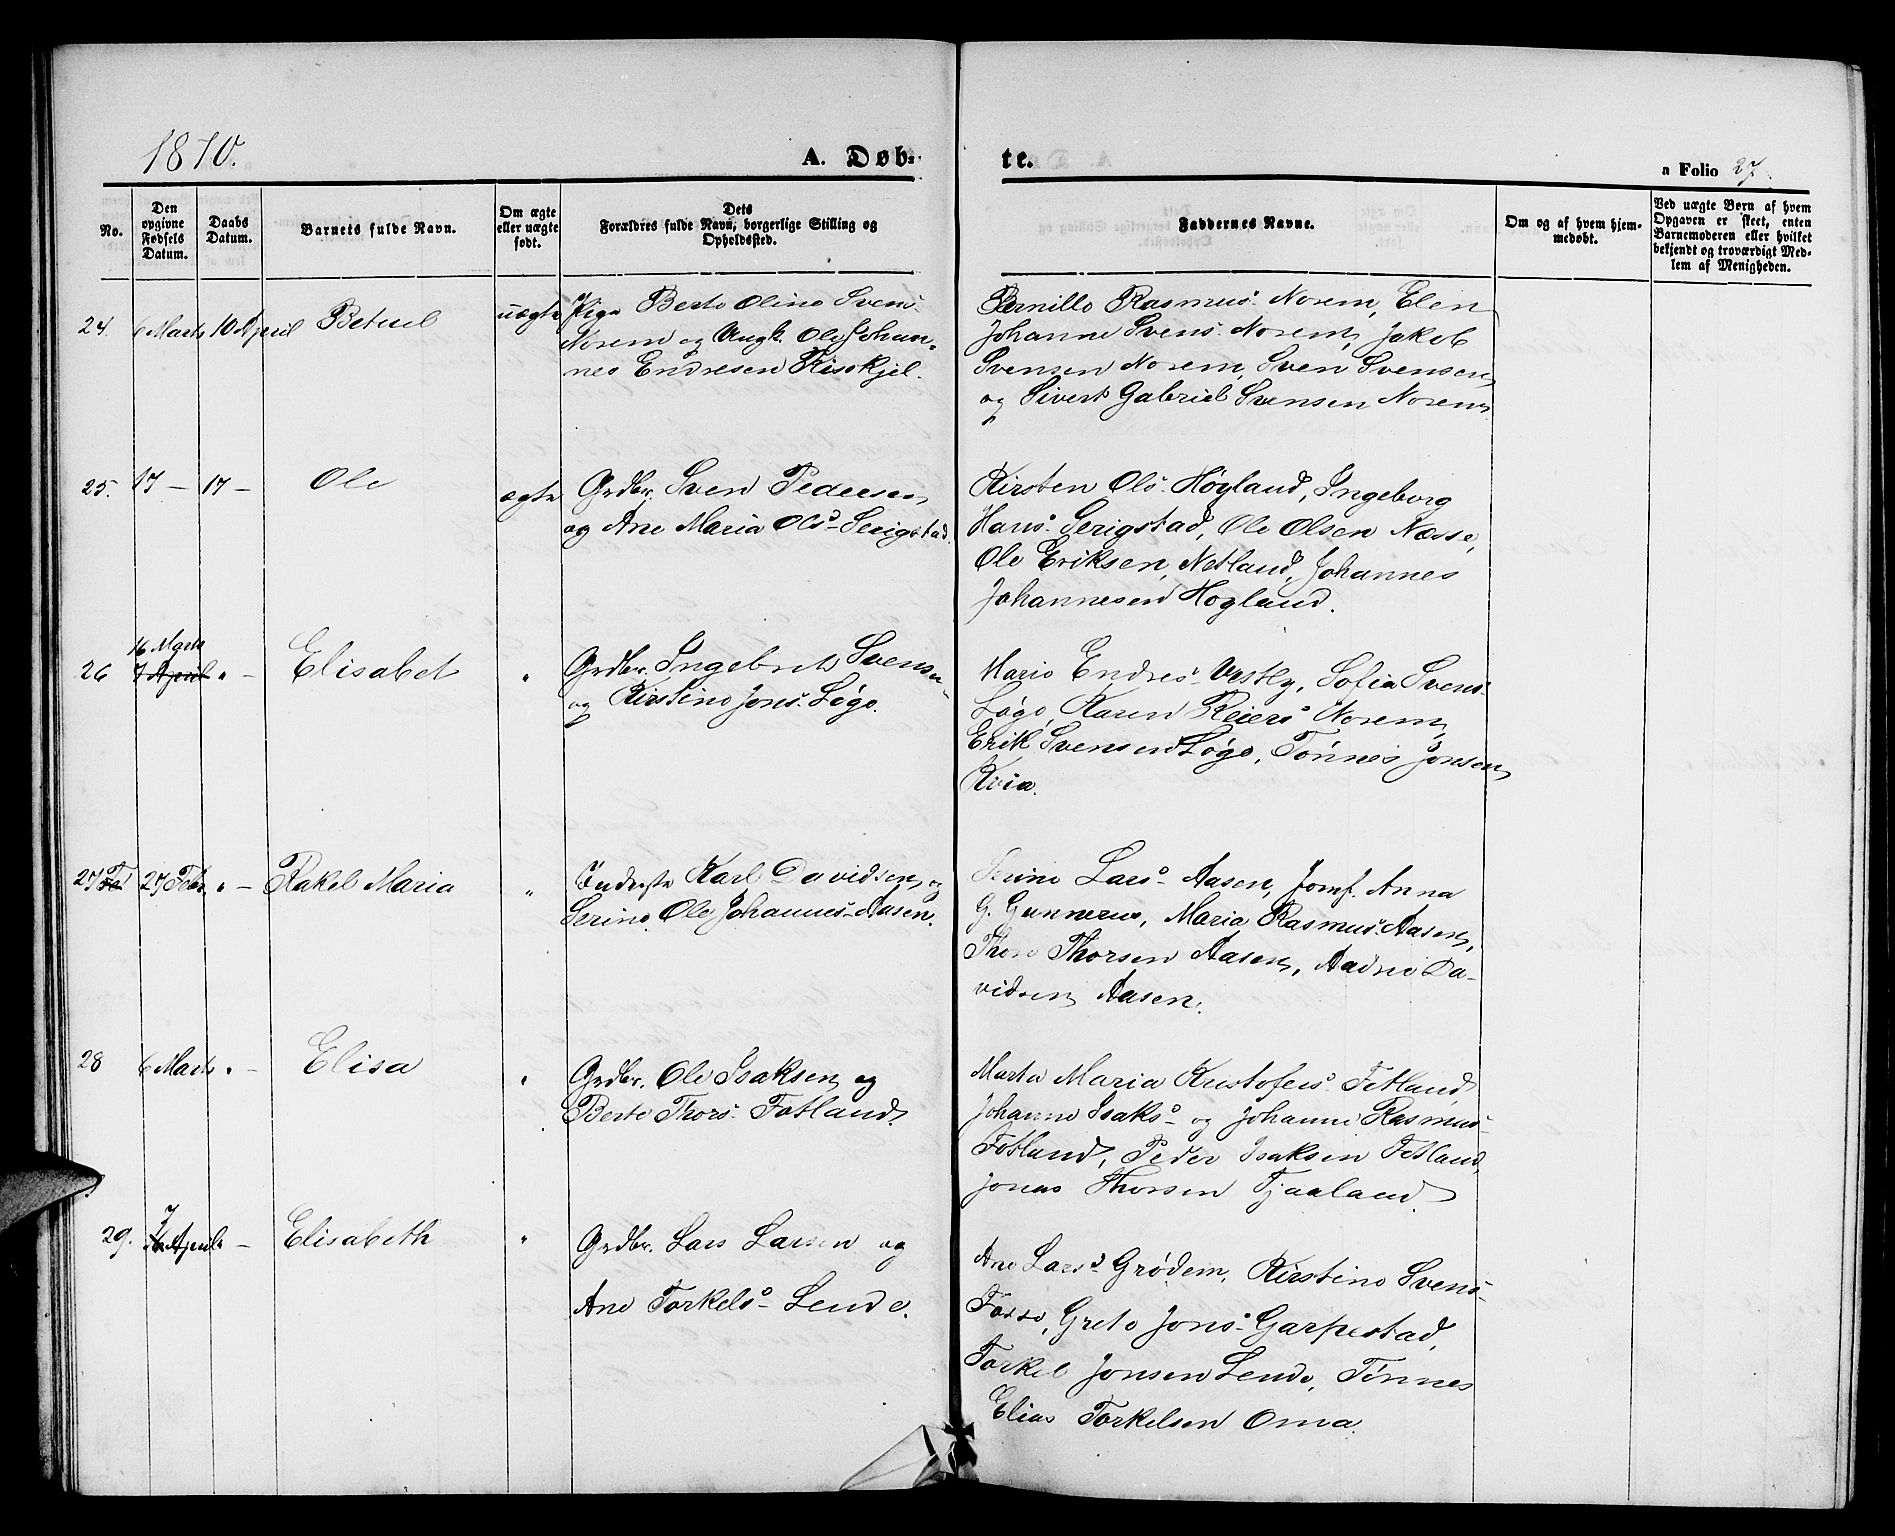 1870.
A. Døb-
te.
a Folio 27.
No.
Den opgivne Fødsels Datum.
Daabs Datum.
Barnets fulde Navn.
Om ægte eller uægte født.
Dets Forældres fulde Navn, borgerlige Stilling og Opholdssted.
Faddernes Navne.
Om og af hvem hjem-
medøbt.
Ved uægte Børn af hvem
Opgaven er skeet, enten
Barnemoderen eller hvilket
bekjendt og troværdigt Med-
lem af Menigheden.
24. 6 Marts 10 April Betuel uægte Pige Berte Oline Svens-
Norem og Ungk. Ole Johan-
nes Endresen Risskjel.
Pernille Rasmus- Norem, Elen
Johanne Svens- Norem, Jakob
Svensen Norem, Sven Svensen
og Sivert Gabriel Svensen Norem
25. 17 — 17 — Ole ægte Grdbr. Sven Pedersen
og Ane Maria Ols- Serigstad.
Kirsten Ols- Høyland, Ingeborg
Hans- Serigstad, Ole Olsen Næsse,
Ole Eriksen Netland, Johannes
Johannesen Høyland.
16 Marts
26 7 April " — Elisabet " Grdbr. Ingebret Svensen
og Kirstine Jons- Løge.
Marie Endres- Vestly, Sofia Svens-
Løge, Karen Reiers- Norem,
Erik Svensen Løge, Tønnes Jonsen
Kvia.
27 27 Febr. " — Rakel Maria " Inderste Karl Davidsen og
Serine Ole Johannes- Aasen.
Serine Lars- Aasen, Jomf. Anna
G. Gunnerus, Maria Rasmus- Aasen,
Thore Thorsen Aasen, Aadne Da-
vidsen Aasen.
28 6 Marts " — Elisa " Grdbr. Ole Isaksen og
Berte Thors- Fotland.
Marta Maria Kristofers- Fotland,
Johanne Isaks- og Johanne Rasmus-
Fotland, Peder Isaksen Fotland,
Jonas Thorsen Tjaaland.
29. 7 April " — Elisabeth " Grdbr. Lars Larsen og
Ane Torkels- Lende.
Ane Lars- Grødem, Kirstine Svens-
Fosse, Grete Jons- Garpestad,
Torkel Jonsen Lende, Tønnes
Elias Torkelsen Oma.